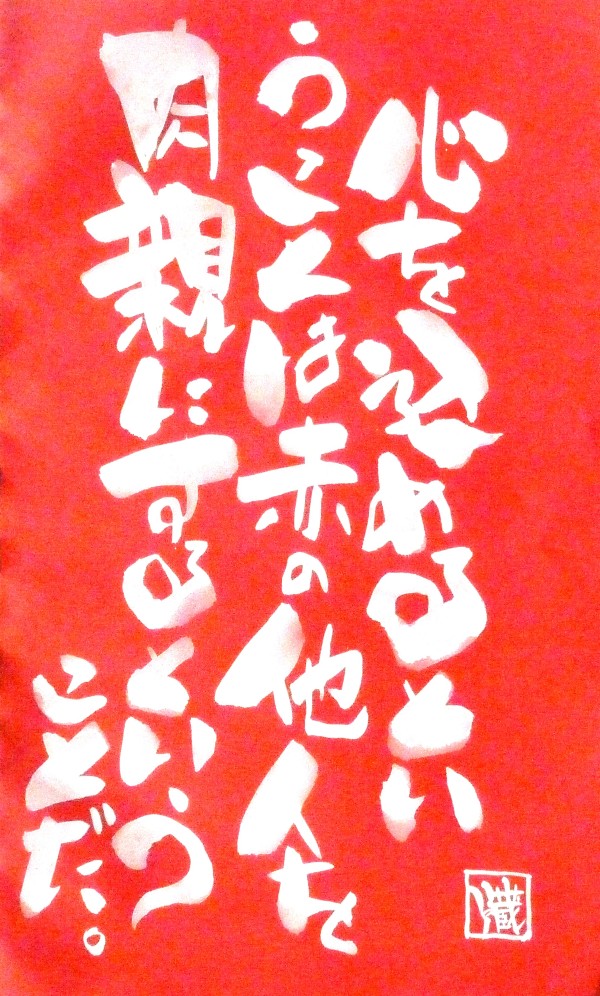 心を込めるとい
うことは赤の他人を
肉親にするという
ことだ。